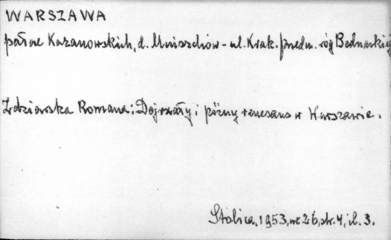 WARSZAWA
pałac Kazanowskich, d. Mniszchów - ul. Krak. Przedm. róg Bednarskiej
Zdziarska Romana: Dojrzały i późny renesans w Warszawie.
Stolica, 1953, nr 26, str. 4, il. 3.